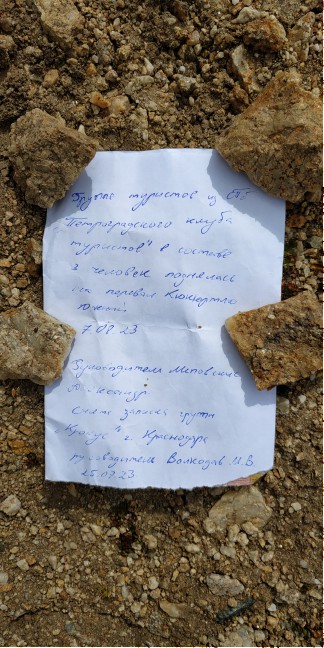 Группа туристов из СПб
"Петроградского клуба
туристов" в составе
человек поднялась
на перевал Кюкюртлю
Южный
7.08.23
Руководитель
Снята записка группы
"Крокус" г. Краснодара
руководитель Волкодав М.В.
25.07.23